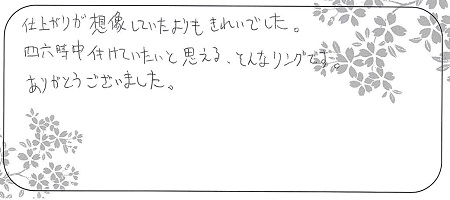 仕上がりが想像していたよりもきれいでした。
四六時中付けていたいと思える、そんなリングです。
ありがとうございました。